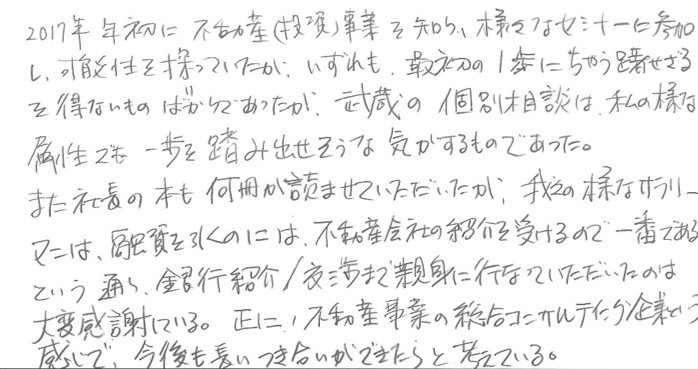 2017年 年初に不動産(投資)事業を知り、様々なセミナーに参加
し、可能性を探っていたが、いずれも、最初の1歩にちゅう躇せざる
を得ないものばかりであったが、武蔵の個別相談は、私の様な
属性でも一歩を踏み出せそうな気がするものであった。
また社長の本も何冊か読ませていただいたが、我々の様なサラリー
マンは、融資を引くのには、不動産会社の紹介を受けるので一番である
という通り、銀行紹介/交渉まで親身に行なっていただいたのは
大変感謝している。正に、不動産事業の総合コンサルティング企業という
感じで、今後も長いつき合いができたらと考えている。